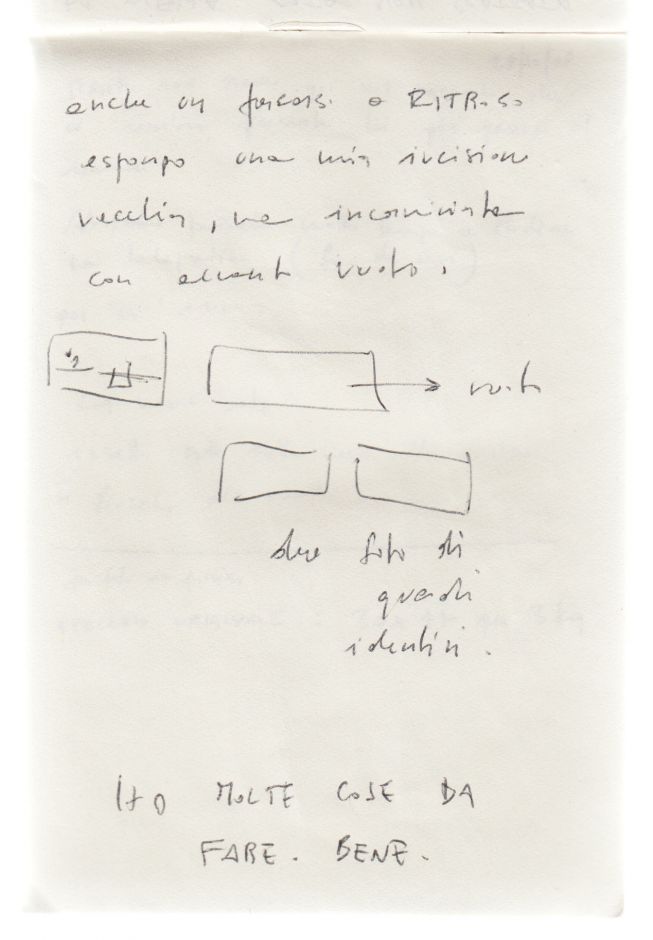 anche un forcorsi a RITROSO
espongo una mia incisione
vecchia, ma incorniciata
con accanto vuoto.
vuoto
due foto di
quadri
identici.
HO MOLTE COSE DA
FARE. BENE.